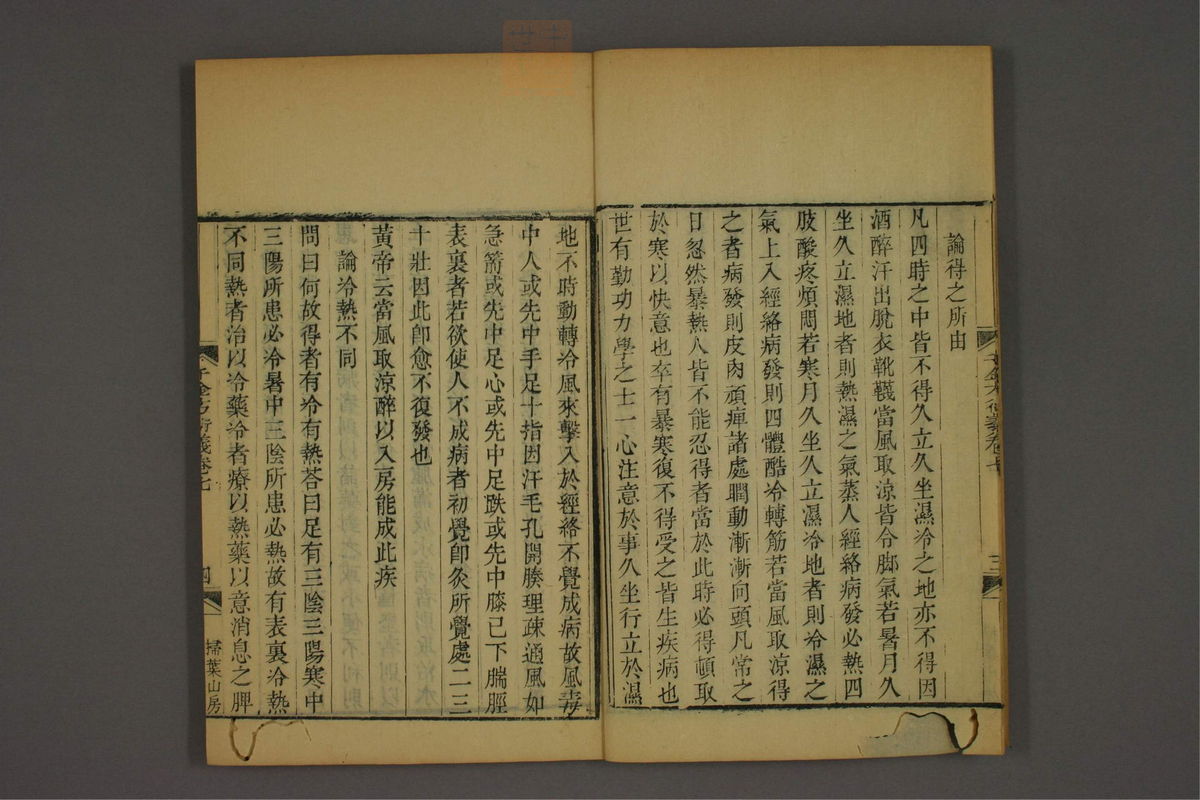 論得之所由
凡四時之中皆不得久立久坐濕冷之地亦不得因
酒醉汗出脫衣靴韈當風取涼皆令脚氣若暑月久
坐久立濕地者則熱濕之氣蒸人經絡病發必熱四
肢酸疼煩悶若寒月久坐久立濕冷地者則冷濕之
氣上入經絡病發則四體酷冷轉筋若當風取涼得
之者病發則皮肉頑痺諸處瞤動漸漸向頭凡常之
日忽然暴熱人皆不能忍得者當於此時必得頓取
於寒以快意也卒有暴寒復不得受之皆生疾病也
世有勤功力學之士一心注意於事久坐行立於濕
三
地不時動轉冷風來擊入於經絡不覺成病故風毒
中人或先中手足十指因汗毛孔開腠理疎通風如
急箭或先中足心或先中足趺或先中膝已下腨脛
表裏者若欲使人不成病者初覺卽灸所覺處二三
十壯因此卽愈不復發也
黃帝云當風取涼醉以入房能成此疾
論冷熱不同
問曰何故得者有冷有熱荅曰足有三陰三陽寒中
三陽所患必冷暑中三陰所患必熱故有表裏冷熱
不同熱者治以冷藥冷者療以熱藥以意消息之脾
千金方衍義卷七
四
掃葉山房